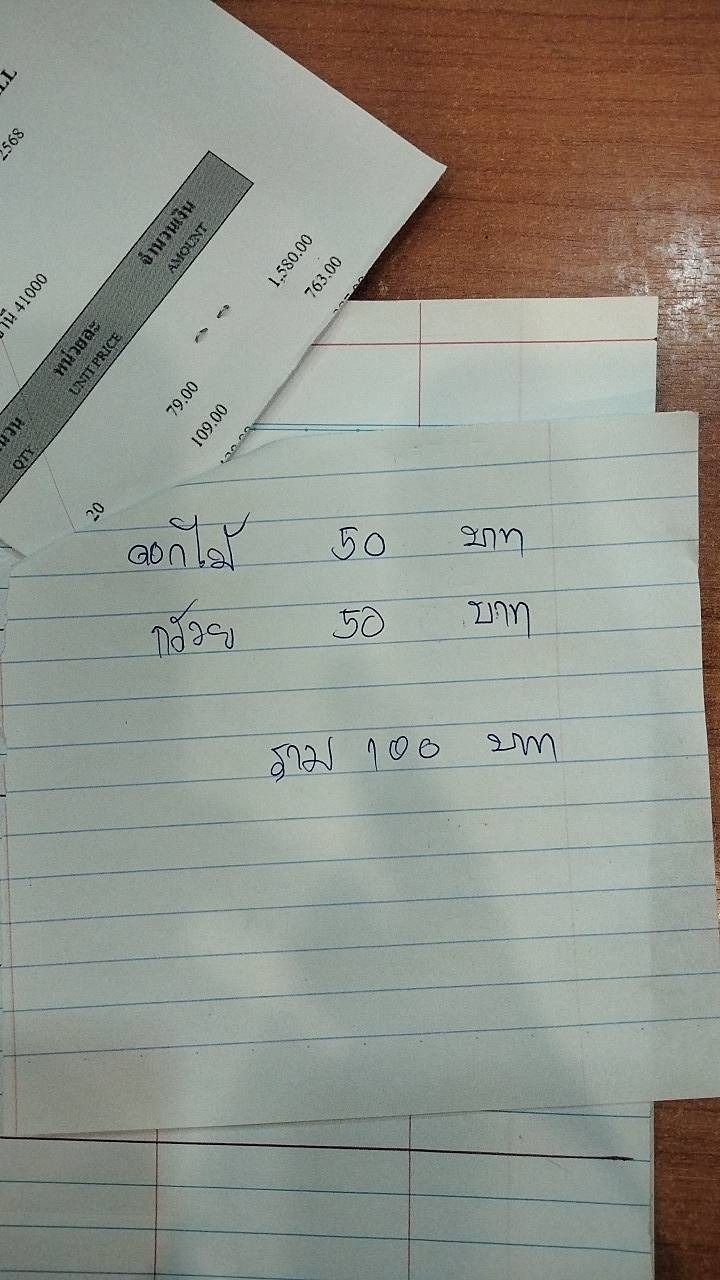 2568
41000
จำนวนเงิน
AMOUNT
หน่วยละ
UNIT PRICE
QTY
1,580.00
763.00
79.00
109.00
20
ดอกไม้ 50 บาท
กล้วย 50 บาท
รวม 100 บาท